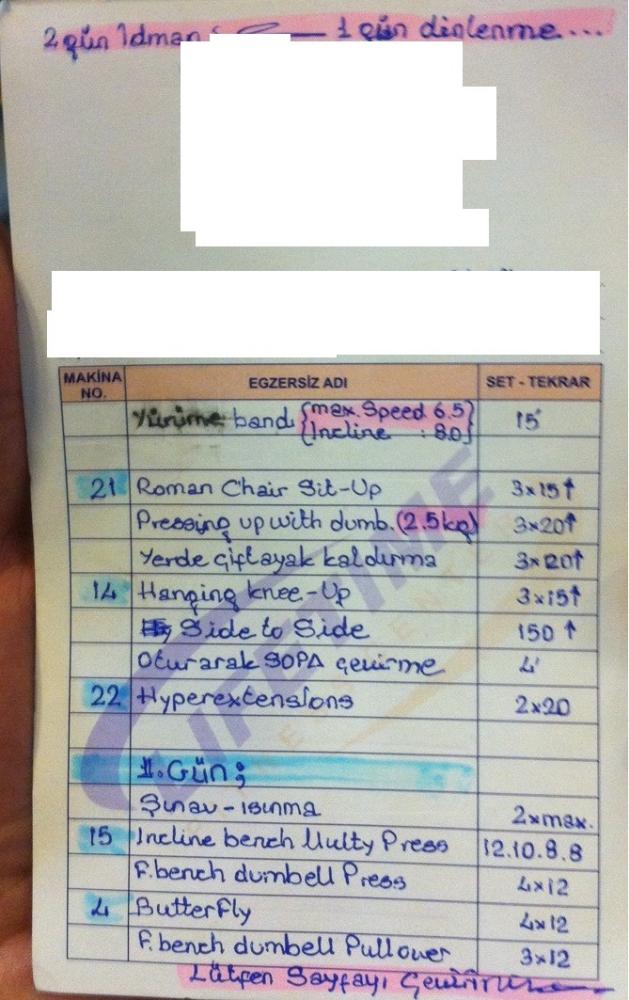 2 gün İdman — 1 gün dinlenme...
MAKİNA NO. EGZERSİZ ADI SET - TEKRAR
Yürüme bandı {max. Speed 6.5} 15'
{Incline : 8.0}
21 Roman Chair Sit-Up 3x15↑
Pressing up with dumb. (2.5kg) 3x20↑
Yerde çift ayak kaldırma 3x20↑
14 Hanging knee-Up 3x15↑
Side to Side 150 ↑
Oturarak SOPA çevirme 4'
22 Hyperextensions 2x20
1.Gün;
Şınav - ısınma 2xmax.
15 Incline bench Multy Press 12.10.8.8
F.bench dumbell Press 4x12
4 Butterfly 4x12
F.bench dumbell Pullover 3x12
Lütfen Sayfayı Çeviriniz
LIFETIME